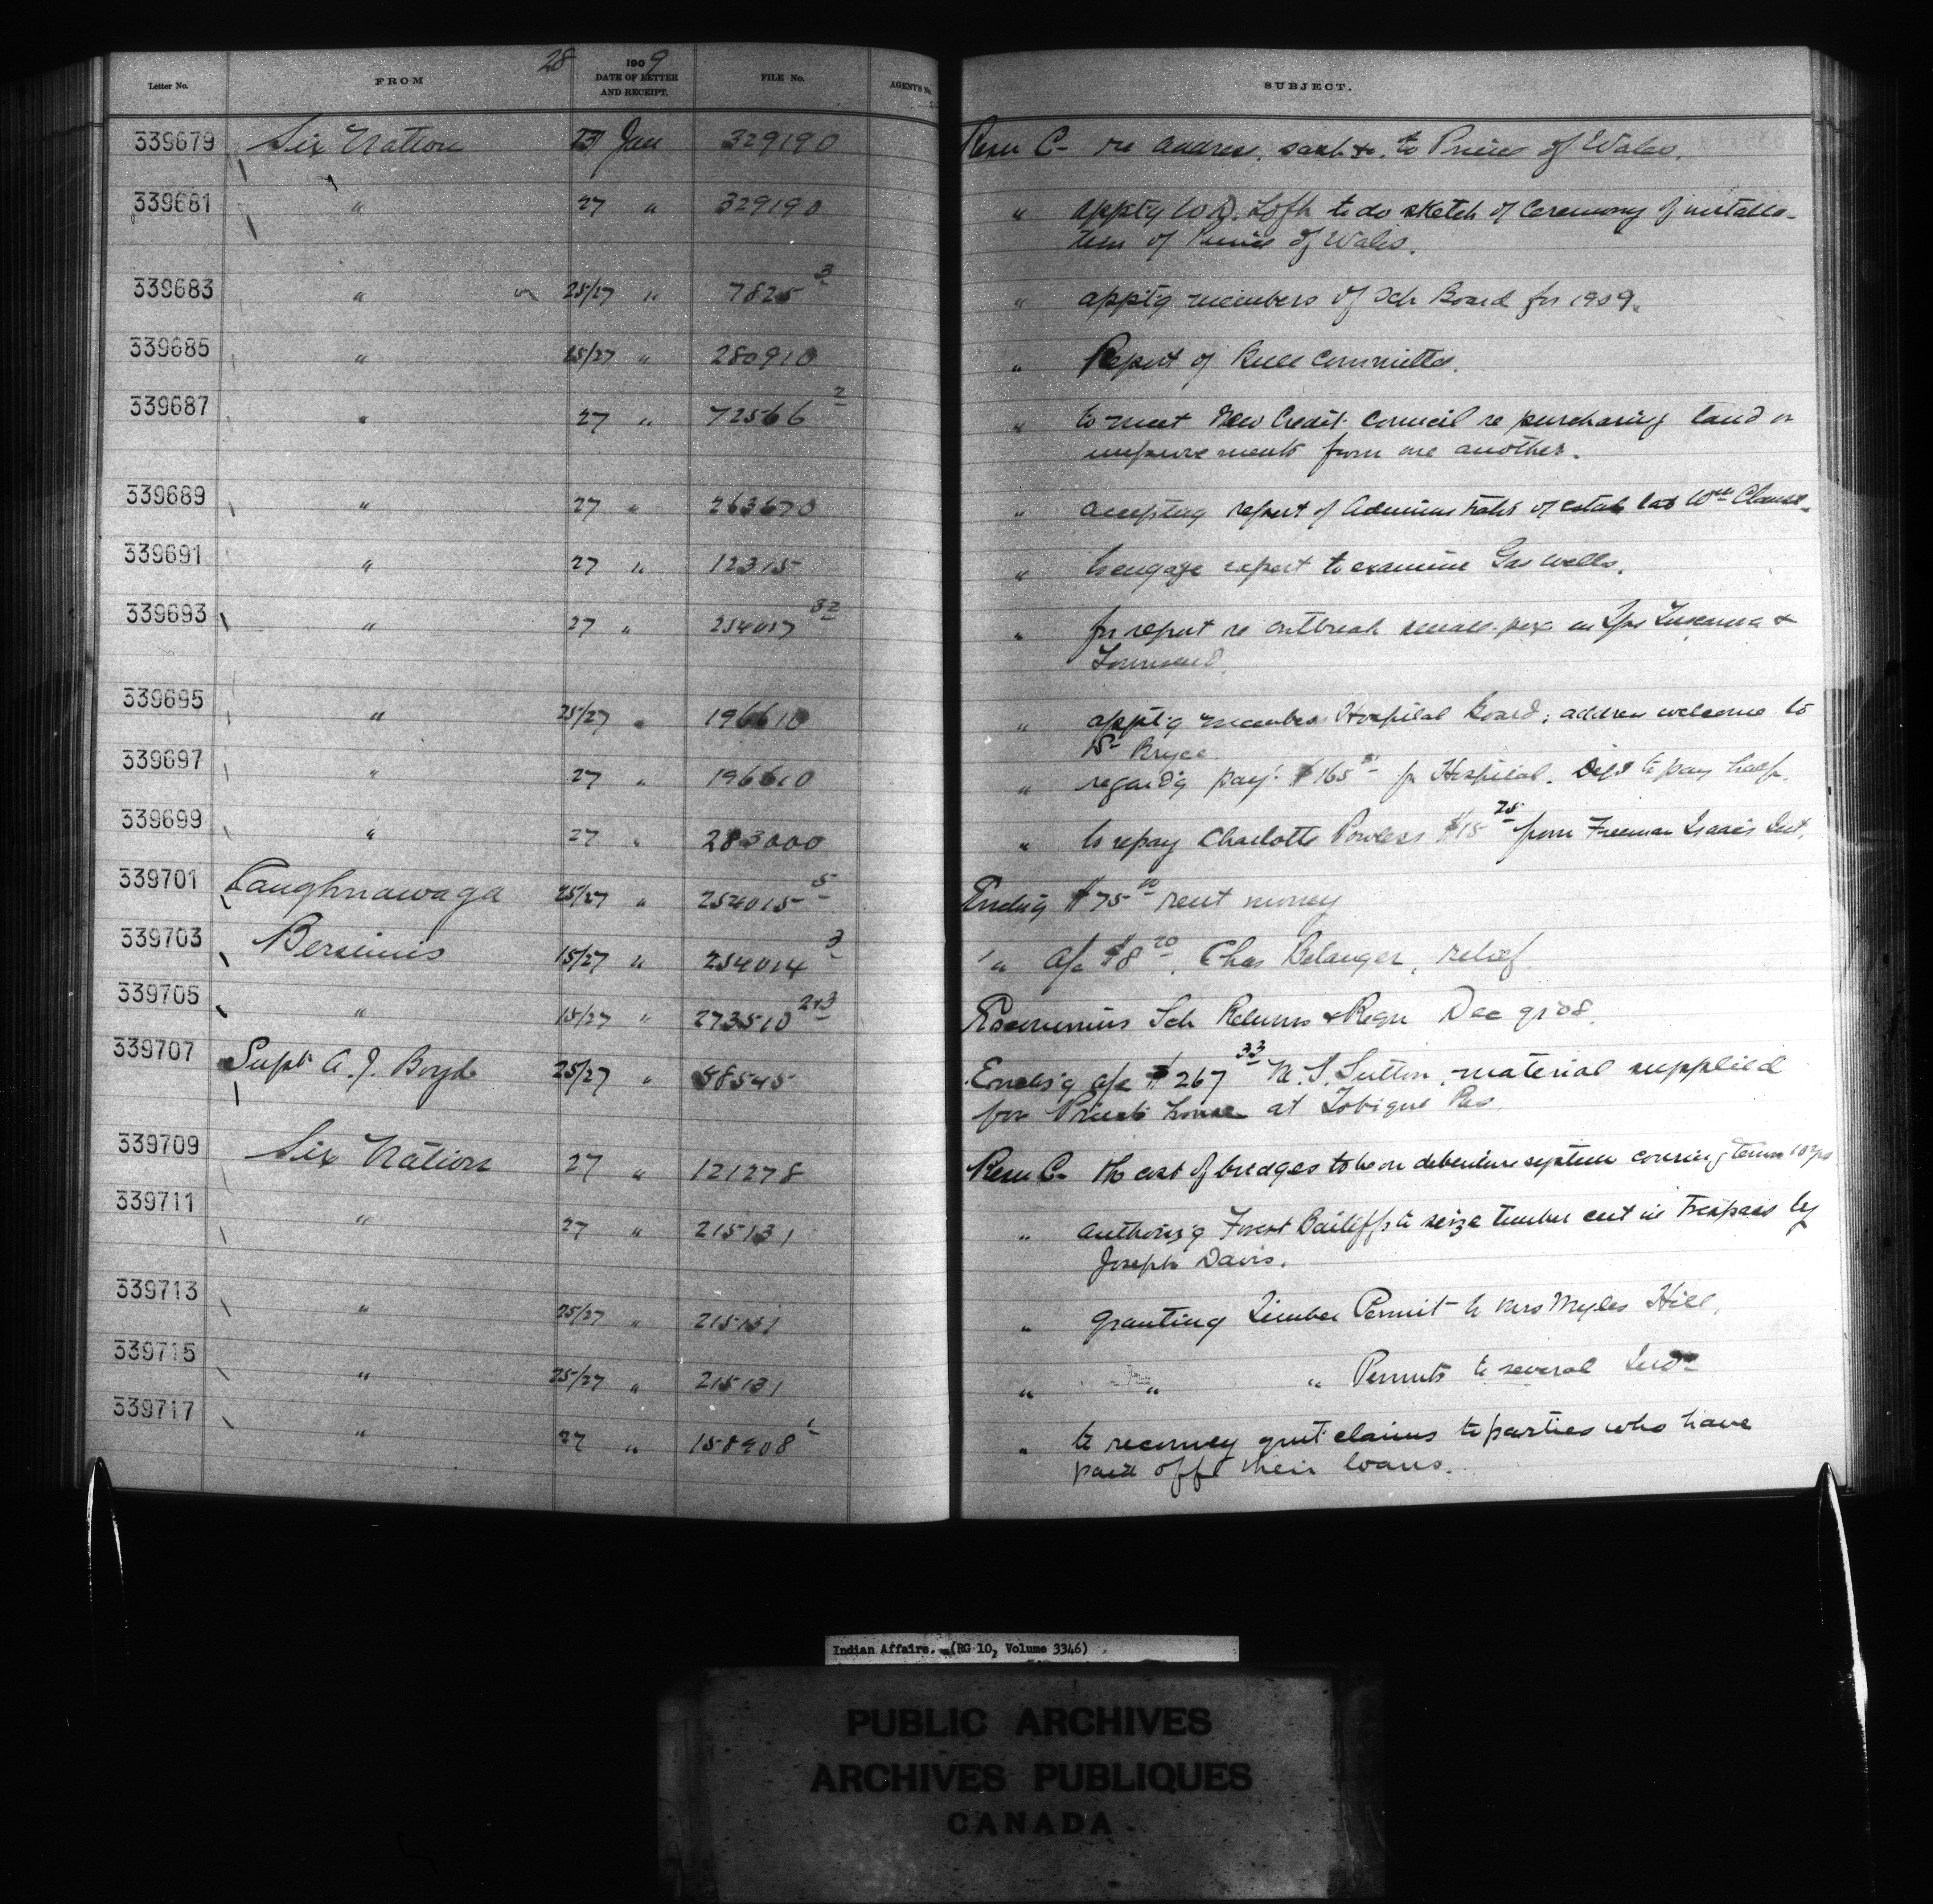 28 1909
Letter No. FROM DATE OF LETTER AND RECEIPT. FILE No. AGENT'S No. SUBJECT.
339679 Six Nation 23 Jan 329190 Resn C- re address, sash &c. to Prince of Wales.
339681 " 27 " 329190 " apptg W.D. Loft to do sketch of Ceremony of installa-
tion of Prince of Wales.
339683 " 25/27 " 7825 3 " apptg members of Sch Board for 1909.
339685 " 25/27 " 280910 " Report of Rule Committee.
339687 " 27 " 72566 2 " to meet New Credit Council re purchasing land or
improvements from one another.
339689 " 27 " 263670 " accepting report of of estate late Wm
339691 " 27 " 12315 " to engage expert to examine Gas wells.
339693 " 27 " 254017 32 " for report re outbreak small-pox in Tps Tuscarora &
Townsend
339695 " 25/27 " 196610 " apptg members Hospital Board; address welcome to
Dr Bryce
339697 " 27 " 196610 " regardg payt $165 for Hospital. Dept to pay half.
339699 " 27 " 283000 " to repay Charlotte Powless $15 28 from Freeman Isaac's Int.
339701 Caughnawaga 25/27 " 254015 5 $75 00 rent money
339703 Bersimis 15/27 " 254014 3 " a/c $8 20, Chas Belanger, relief
339705 " 15/27 " 273510 2&3 Sch Returns & Reqn Dec qr 08.
339707 Supt A. J. Boyd 25/27 " 58545 Enclos'g a/c $267 33 Sutton, material supplied
for Priest's house at Tobique Res
339709 Six Nation 27 " 121278 Resn C- the cost of bridges to be on debenture system covering term 10 yrs
339711 " 27 " 215131 " authoris'g Forest Bailiffs to seize timber cut in trespass by
Joseph Davis.
339713 " 25/27 " 215131 " granting Timber Permit to Mrs Myles Hill.
339715 " 25/27 " 215131 " " " Permits to several Inds
339717 " 27 " 158408 " to reconvey quit claims to parties who have
paid off their loans.
Indian Affairs. (RG 10, Volume 3346)
PUBLIC ARCHIVES
ARCHIVES PUBLIQUES
CANADA